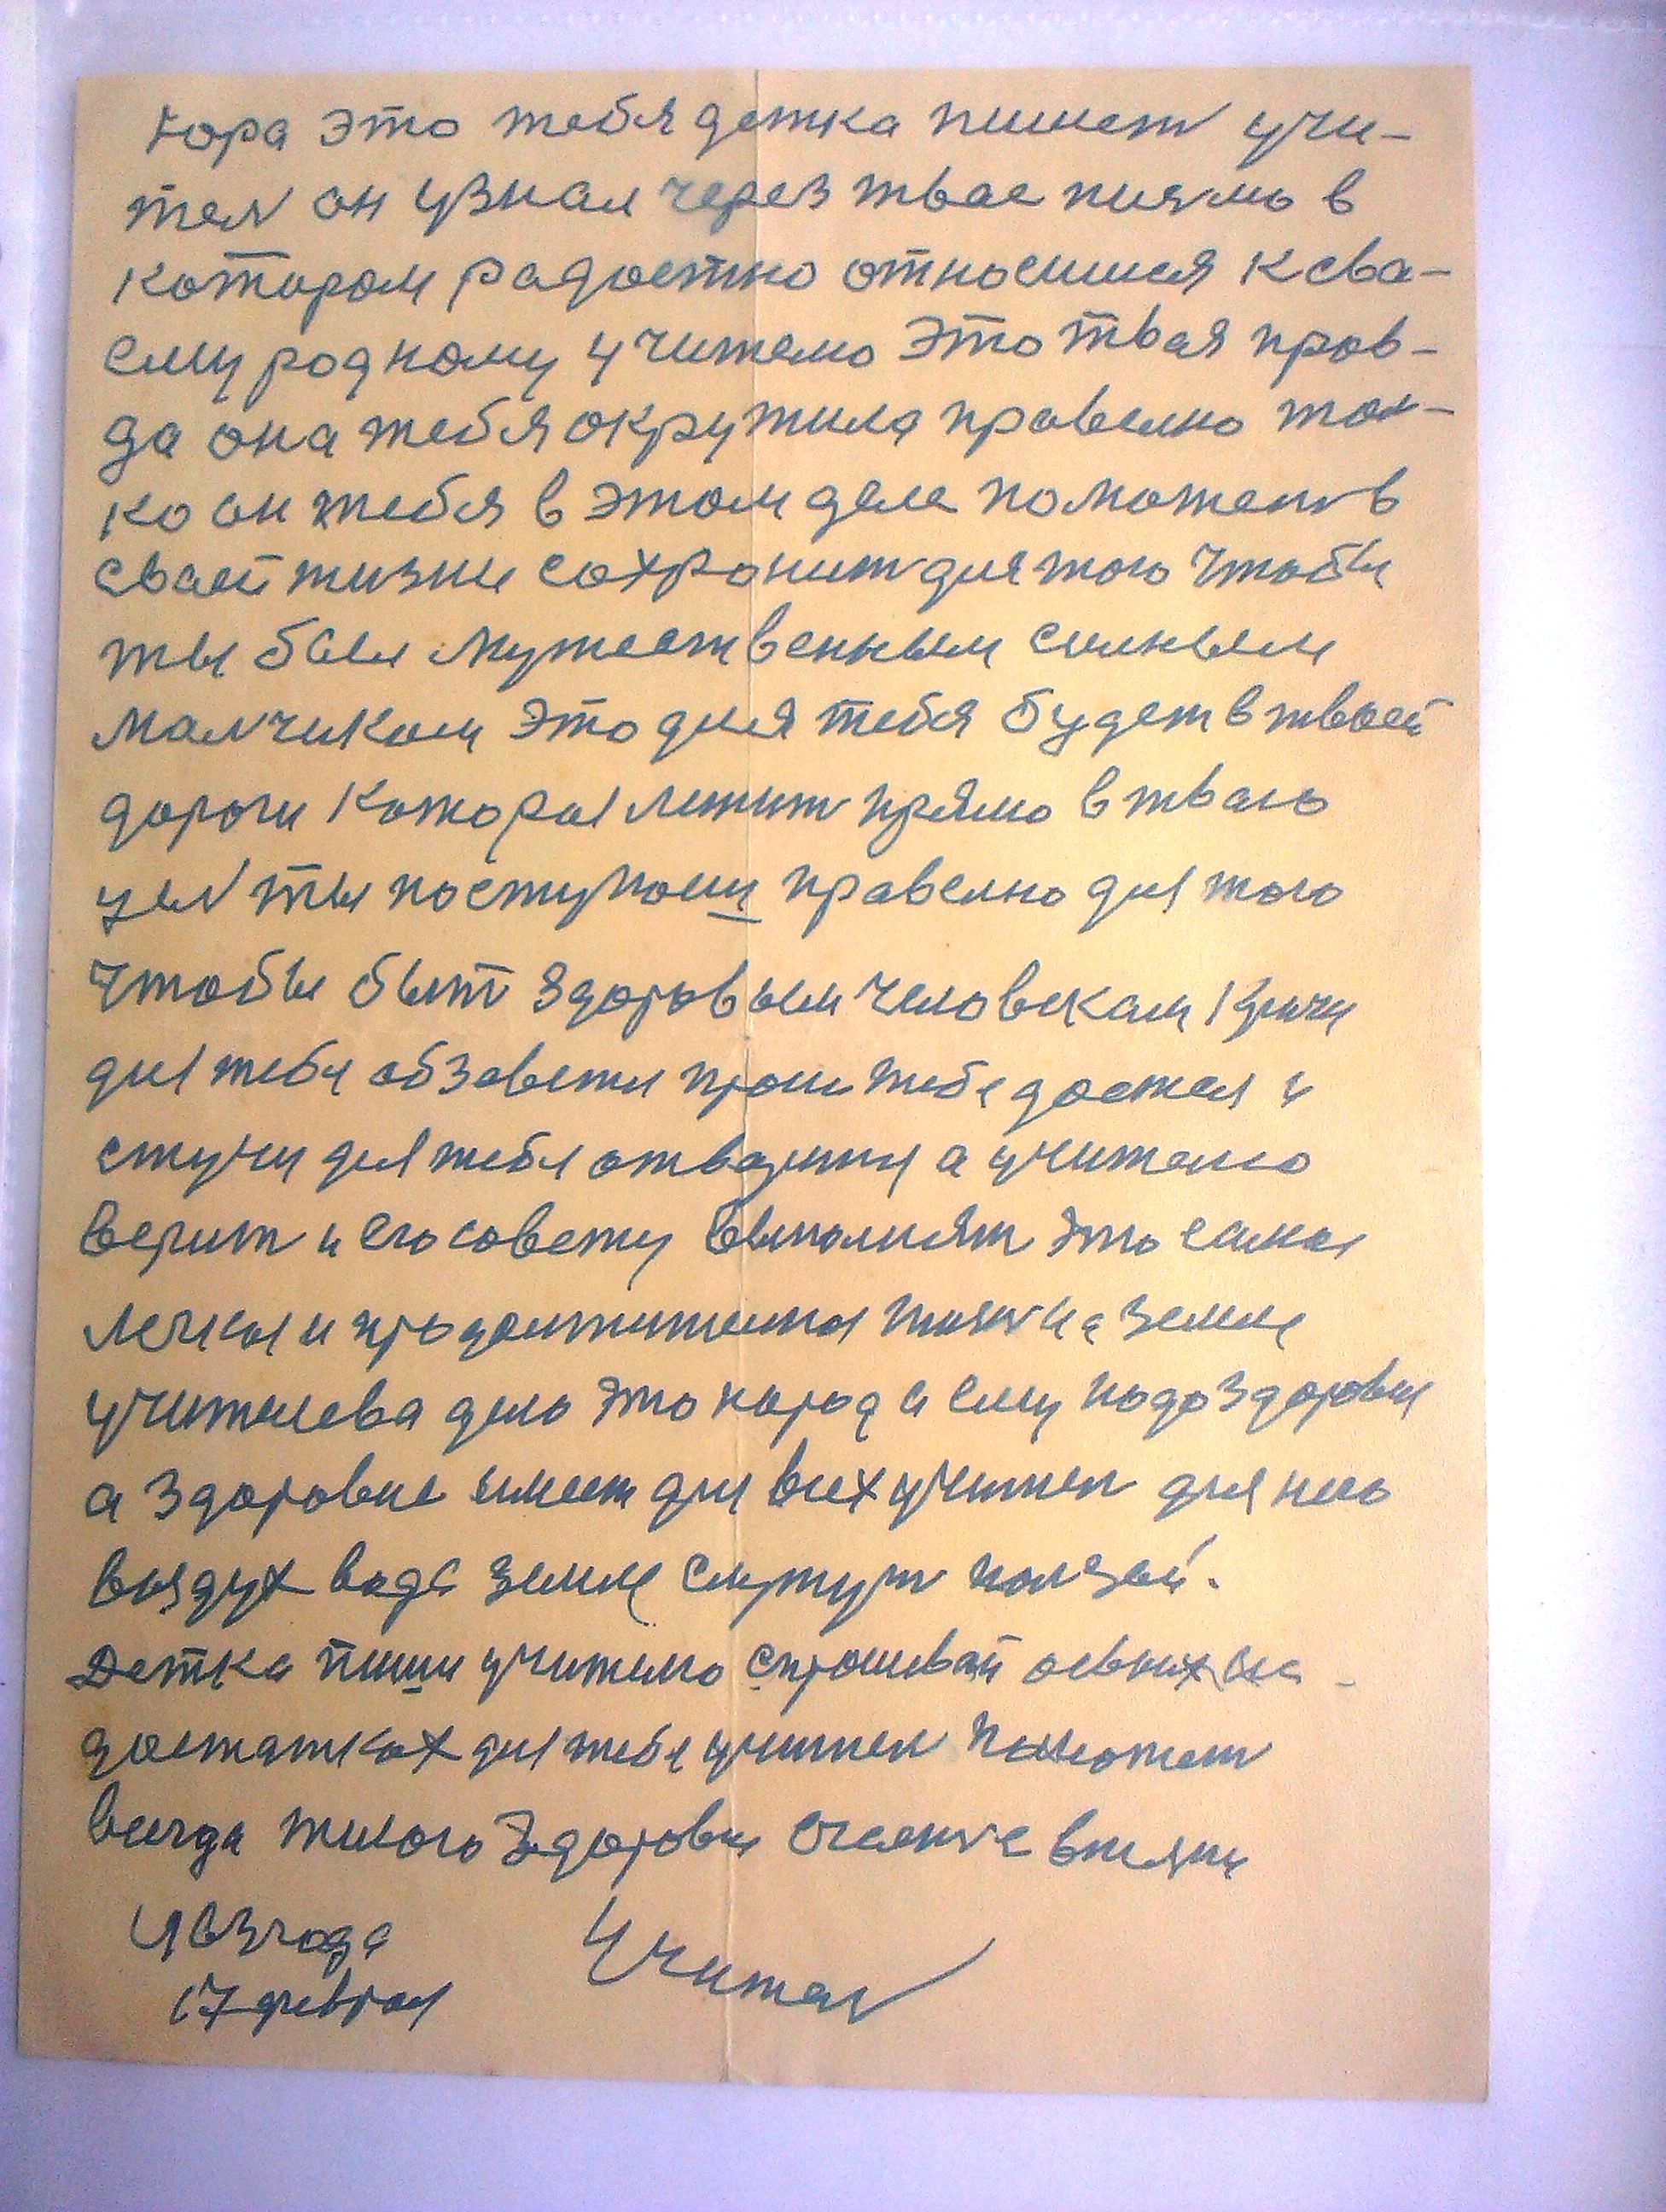 Юра это тебя детка пишет учи-
тел он узнал через твае писмо в
котором радостно относишся к сва-
ему родному учителю Это твая прав-
да она тебя окружила правелно тол-
ко он тебя в этом деле поможет в
сваей жизни сохранит для того чтобы
ты был мужественным силным
малчиком Это для тебя будет в твоей
дороги которая лежит прямо в тваю
цел ты поступаеш правелно для того
чтобы быт здоровым человекам Кричи
для тебя обзоветця проси тебе достся и
стучи для тебя отварится а учителю
верит и его совету выполнят Это самая
легкая и продолжителная жизн на земле
учителева дело Это народ а ему надо здоровия
а здоровие имеет для всех учител для него
воздух вода земля служут ползай.
Детка пиши учителю спрашивай о сваих не-
достатках для тебя учител поможет
всегда желаю Здоровия счастие в жизни
1963 года Учител
17 феврал